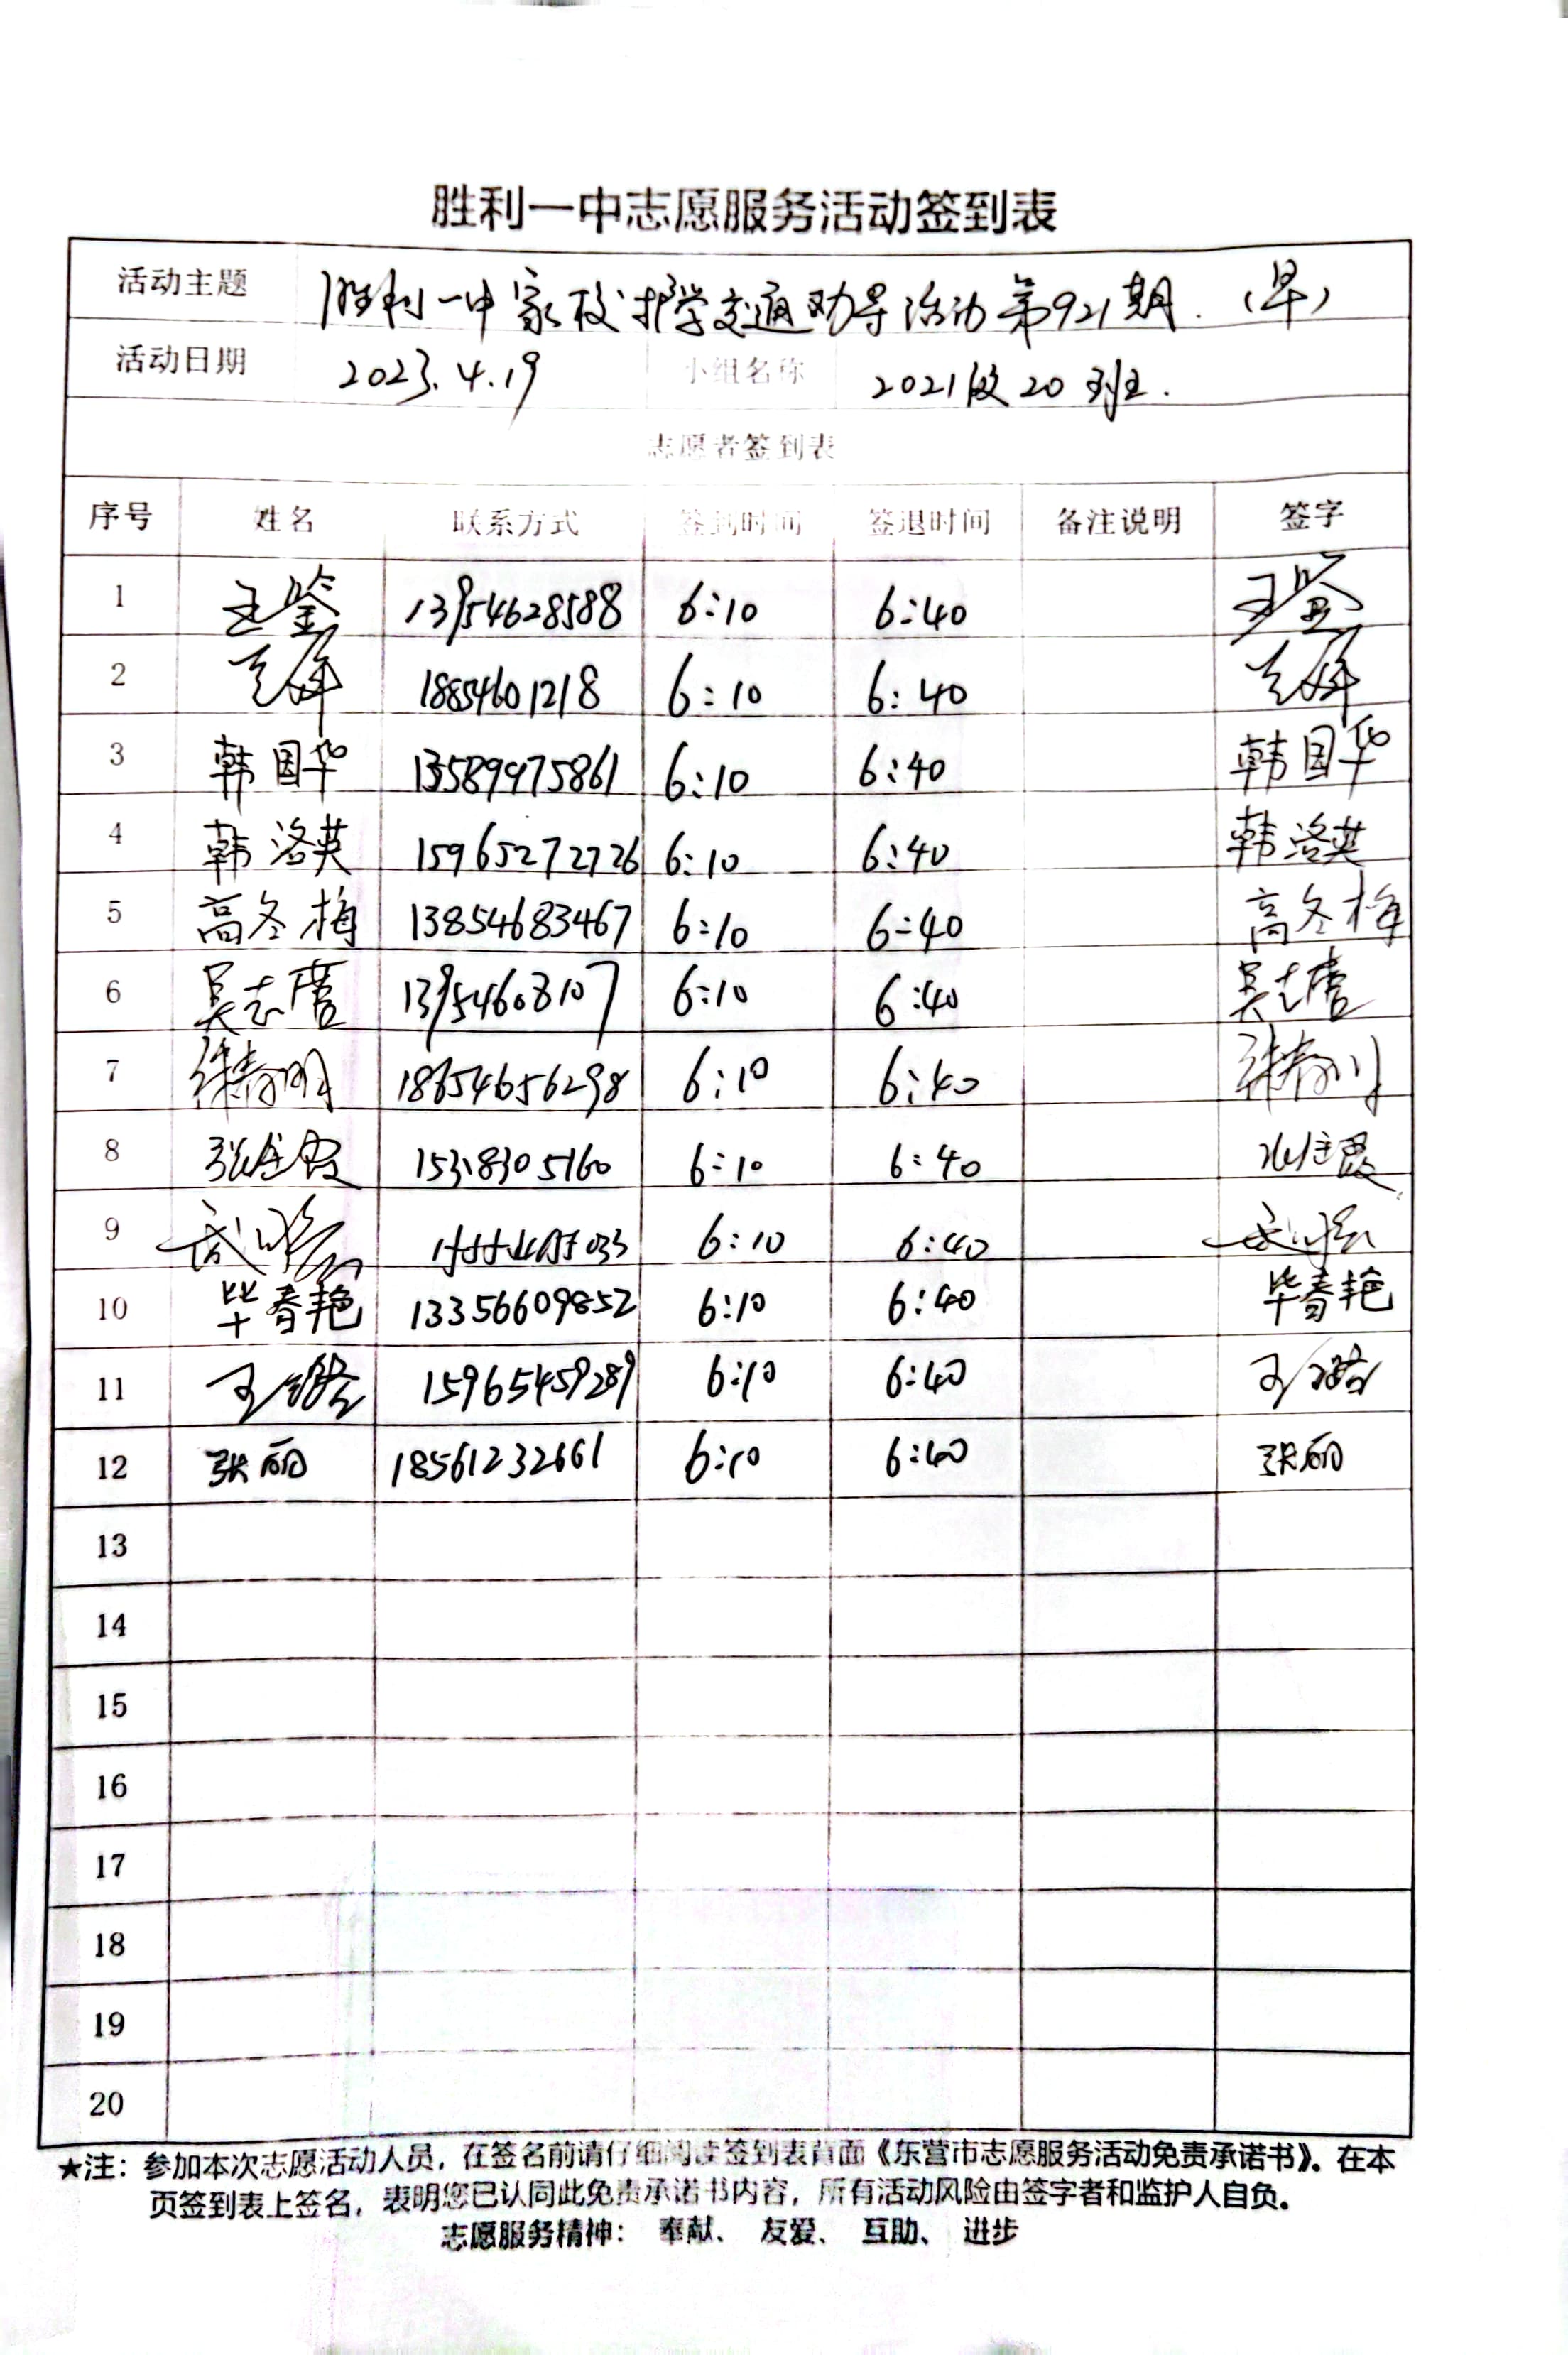 胜利一中志愿服务活动签到表
活动主题 胜利一中家校护学交通劝导活动第921期.（早）
活动日期 2023.4.19 小组名称 2021级20班.
志愿者签到表
序号 姓名 联系方式 签到时间 签退时间 备注说明 签字
1 王鉴 13954628588 6:10 6:40 王鉴
2 18854601218 6:10 6:40
3 韩国华 13589975861 6:10 6:40 韩国华
4 韩洛英 15965272726 6:10 6:40 韩洛英
5 高冬梅 13854683467 6:10 6:40 高冬梅
6 13954608107 6:10 6:40
7 18654656298 6:10 6:40
8 6:10 6:40
9 6:10 6:40
10 毕春艳 13356609852 6:10 6:40 毕春艳
11 15965459289 6:10 6:40
12 张丽 18561232661 6:10 6:40 张丽
13
14
15
16
17
18
19
20
★注：参加本次志愿活动人员，在签名前请仔细阅读签到表背面《东营市志愿服务活动免责承诺书》。在本
页签到表上签名，表明您已认同此免责承诺书内容，所有活动风险由签字者和监护人自负。
志愿服务精神： 奉献、 友爱、 互助、 进步